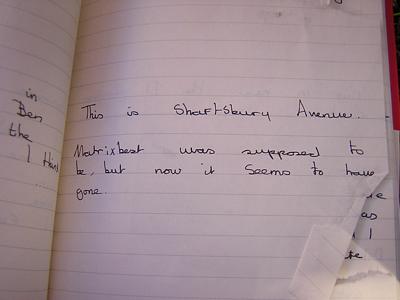 This is Shaftsbury Avenue.
Matrixbest was supposed to
be, but now it seems to have
gone.
in
Ben
the
I
as
I